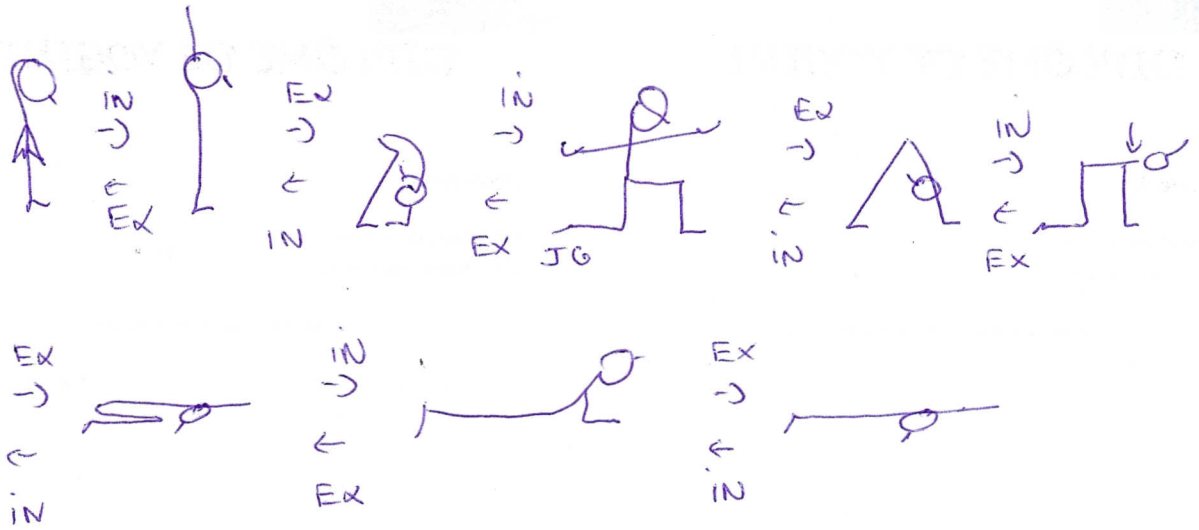 IN → ← EX
EX → ← IN
IN → ← EX
JG
EX → ← IN
IN → ← EX
EX → ← IN
IN → ← EX
EX → ← IN